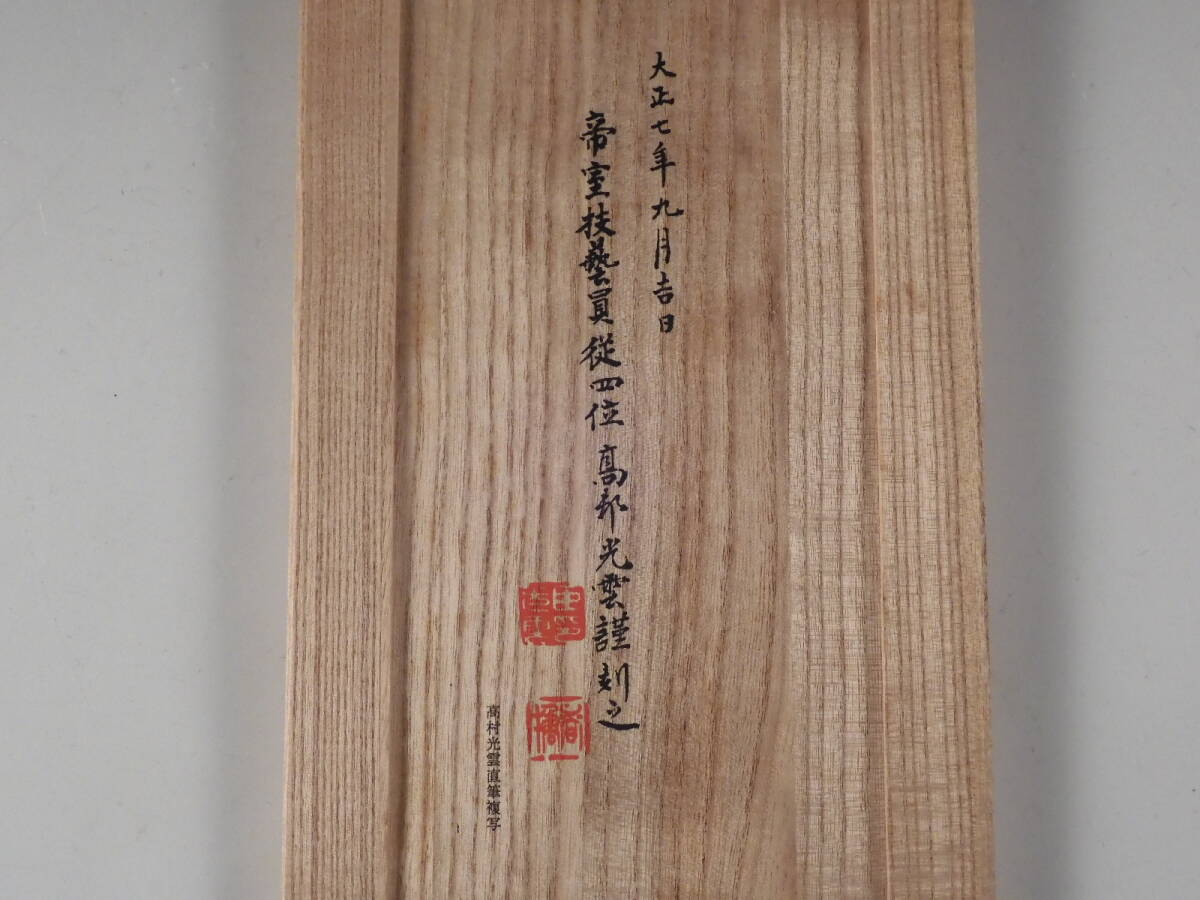 大正七年九月吉日
帝室技藝員従四位 高邨光雲謹刻之
高村光雲直筆複写